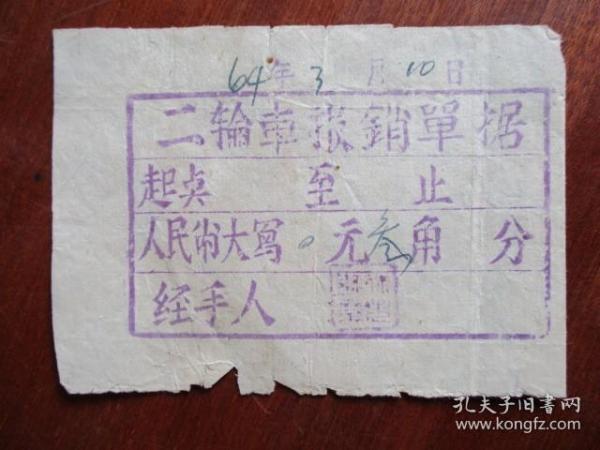 64年3月10日
二轮車报銷單据
起点 至 止
人民币大写 0元叁角 分
经手人
孔夫子旧书网
www.kongfz.com